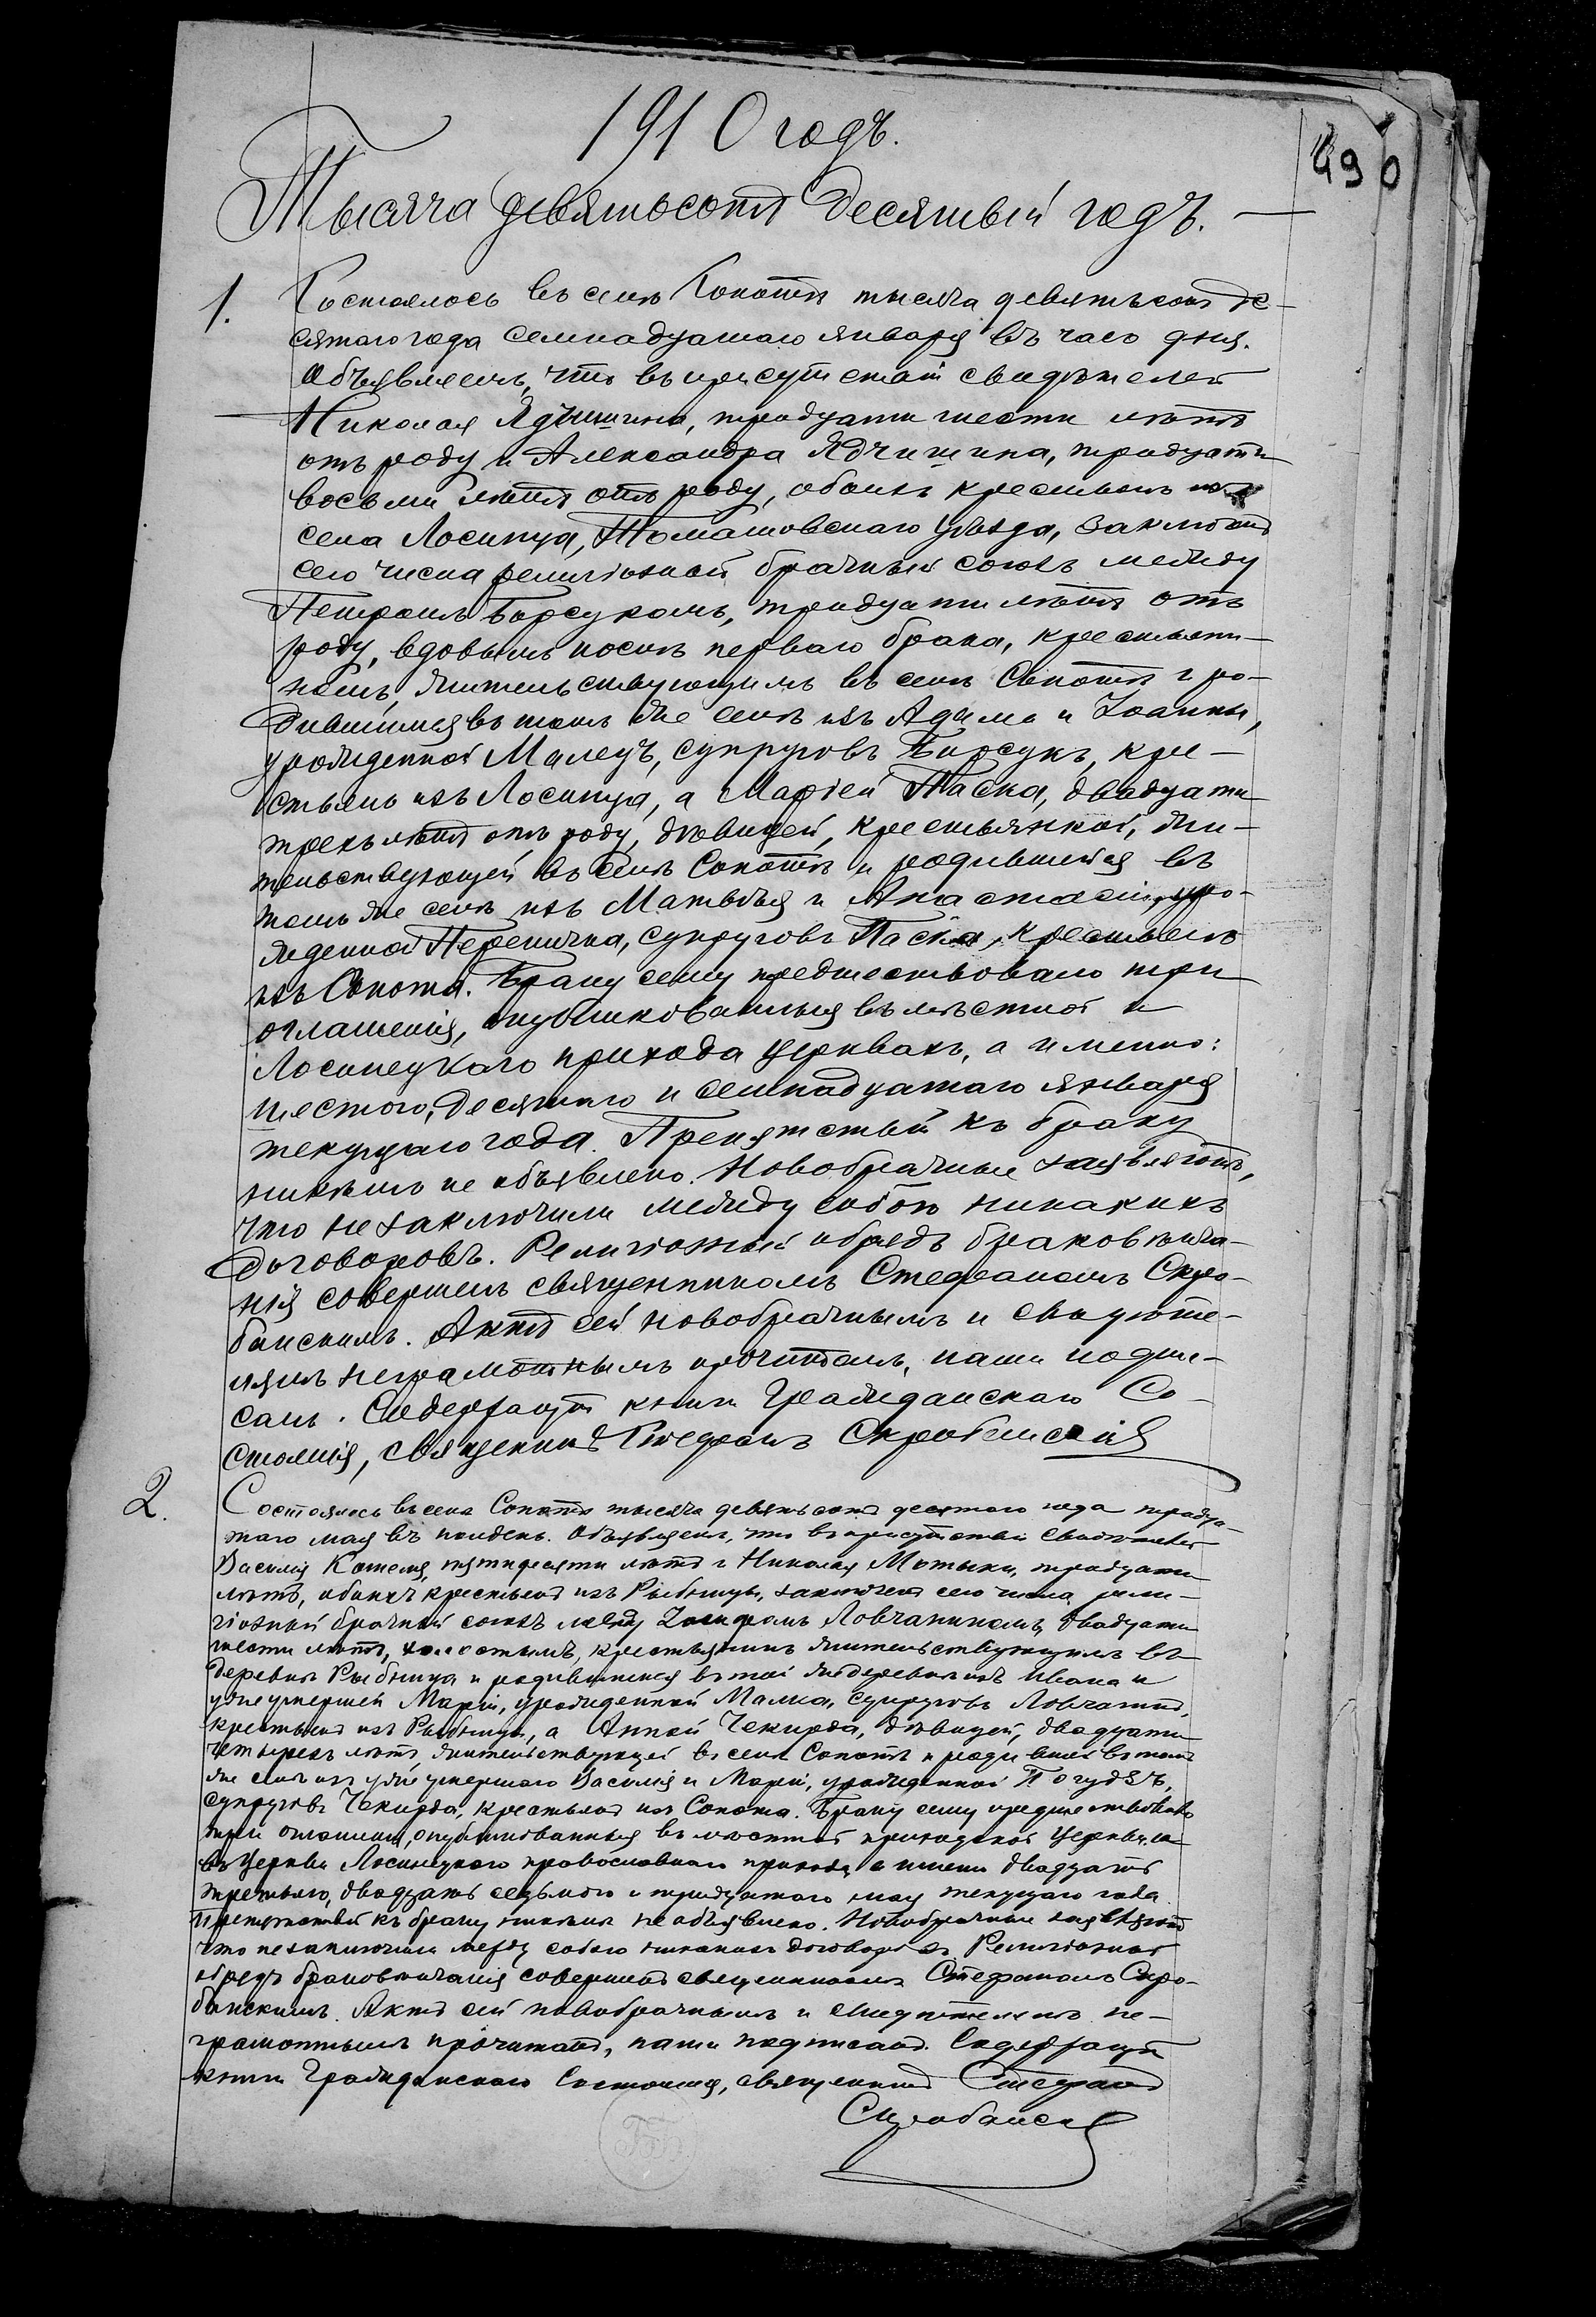 1910 годъ.
490
Тысяча девятьсотъ десятый годъ. —
1.
Состоялось въ селѣ Сопотѣ тысяча девятьсотъ де-
сятаго года семнадцатаго января въ часъ дня.
Объявляемъ, что въ присутствіи свидѣтелей
Николая Ядчишина, тридцати шести лѣтъ
отъ роду и Александра Ядчишина, тридцати
восьми лѣтъ отъ роду, обоихъ крестьянъ изъ
села Лосинца, Томашовскаго уѣзда, заключенъ
сего числа религіозный брачный союзъ между
Петромъ Борсукомъ, тридцати лѣтъ отъ
роду, вдовымъ послѣ перваго брака, крестьяни-
номъ, жительствующимъ въ селѣ Сопотѣ и ро-
дившимся въ томъ же селѣ изъ Адама и Іоанны,
урожденной Малецъ, супруговъ Борсукъ, кре-
стьянъ изъ Лосинца, а Маріей Паска, двадцати
трехъ лѣтъ отъ роду, дѣвицей, крестьянкой, жи-
тельствующей въ селѣ Сопотѣ и родившейся въ
томъ же селѣ изъ Матвѣя и Анастасіи, уро-
жденной Перепичка, супруговъ Паска, крестьянъ
изъ Сопота. Браку сему предшествовало три
оглашенія, опубликованныя въ мѣстной и
Лосинецкаго прихода церквахъ, а именно:
шестого, десятаго и семнадцатаго января
текущаго года. Препятствій къ браку
никѣмъ не объявлено. Новобрачные заявляютъ,
что не заключили между собою никакихъ
договоровъ. Религіозный обрядъ браковѣнча-
нія совершенъ священникомъ Стефаномъ Скро-
банскимъ. Актъ сей новобрачнымъ и свидѣте-
лямъ неграмотнымъ прочитанъ, нами подпи-
санъ. Содержащій книги Гражданскаго Со-
стоянія, священникъ Стефанъ Скробанскій
2.
Состоялось въ селѣ Сопотѣ тысяча девятьсотъ десятаго года тридца-
таго мая въ полдень. Объявляемъ, что въ присутствіи свидѣтелей
Василія Кателя, пятидесяти лѣтъ и Николая Мотыки, тридцати
лѣтъ, обоихъ крестьянъ изъ Рыбницы, заключенъ сего числа рели-
гіозный брачный союзъ между Іосифомъ Ловчаниномъ, двадцати
шести лѣтъ, холостымъ, крестьяниномъ жительствующимъ въ
деревнѣ Рыбница и родившимся въ той же деревнѣ изъ Ивана и
уже умершей Маріи, урожденной Малка, супруговъ Ловчанинъ,
крестьянъ изъ Рыбницы, а Анной Чекирда, дѣвицей, двадцати
четырехъ лѣтъ, жительствующей въ селѣ Сопотѣ и родившейся въ томъ
же селѣ изъ уже умершаго Василія и Маріи, урожденной
супруговъ Чекирда, крестьянъ изъ Сопота. Браку сему предшествовало
три оглашенія, опубликованныя въ мѣстной приходской церкви и
въ церкви Лосинецкаго православнаго прихода, а именно двадцать
третьяго, двадцать седьмого и тридцатаго мая текущаго года
Препятствій къ браку никѣмъ не объявлено. Новобрачные заявляютъ
что не заключили между собою никакихъ договоровъ. Религіозный
обрядъ браковѣнчанія совершенъ священникомъ Стефаномъ Скро-
банскимъ. Актъ сей новобрачнымъ и свидѣтелямъ не-
грамотнымъ прочитанъ, нами подписанъ. Содержащій
книги Гражданскаго Состоянія, священникъ Стефанъ
Скробанскій